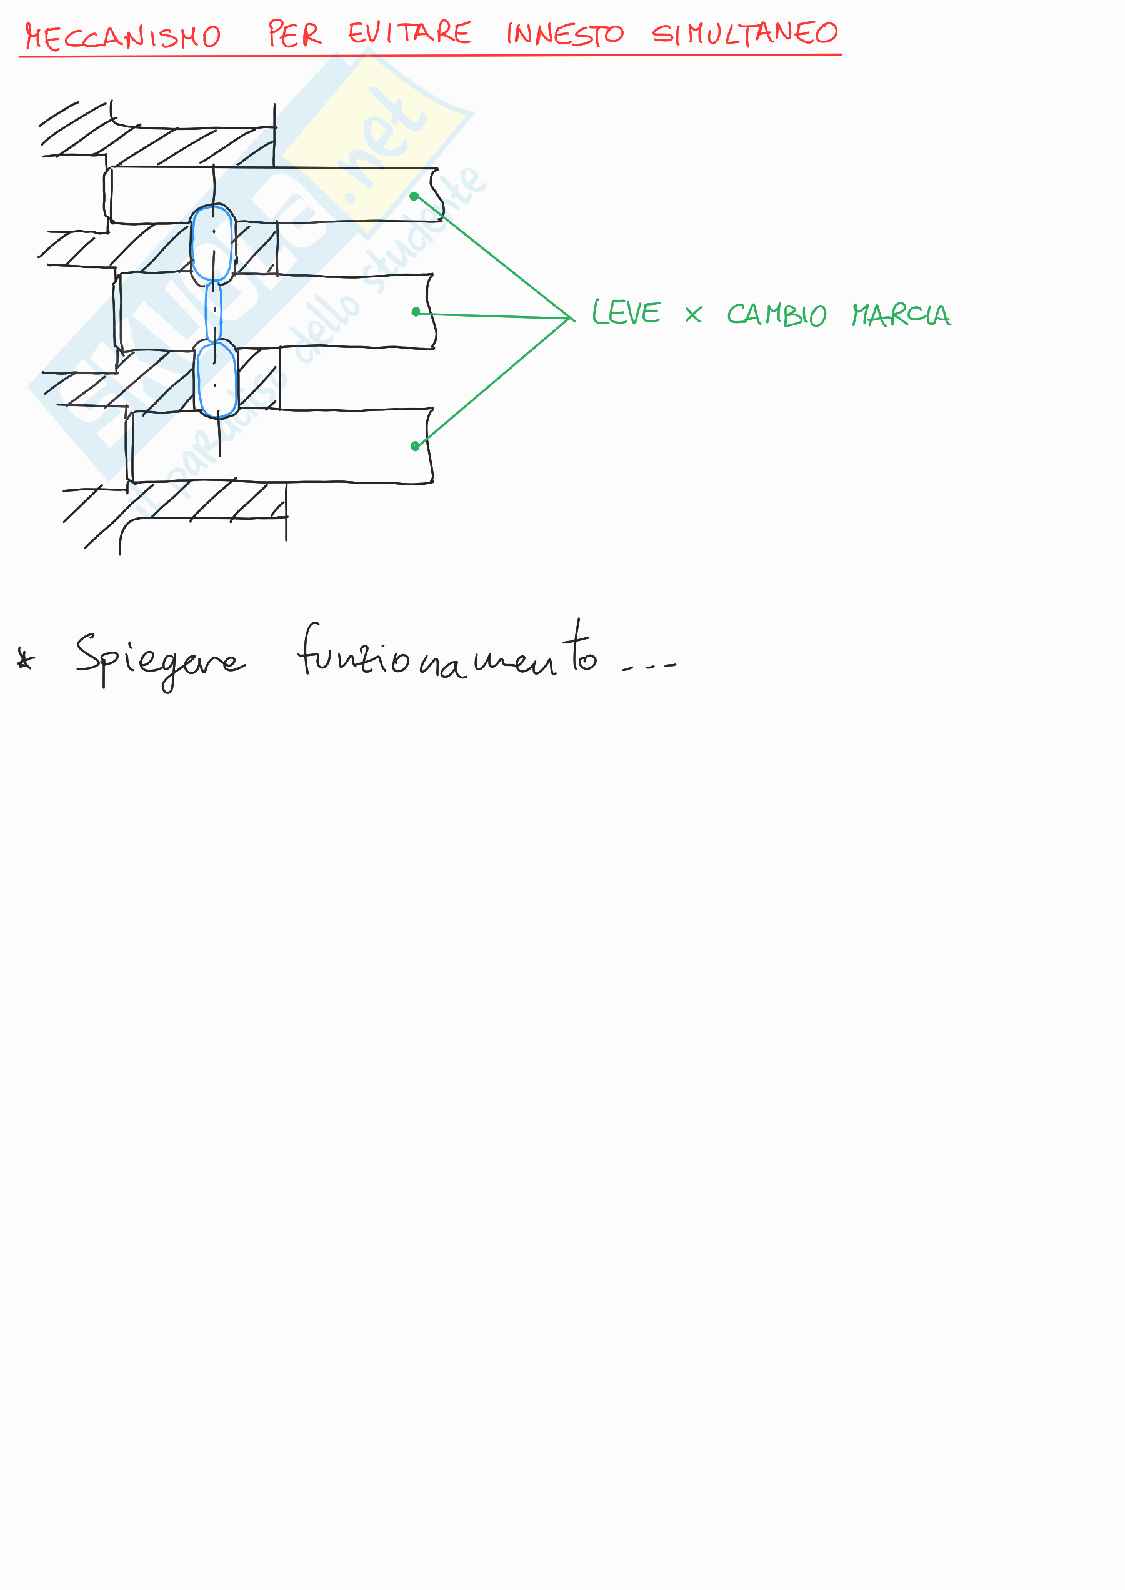 MECCANISMO PER EVITARE INNESTO SIMULTANEO
SKUOLA.net
il paradiso dello studente
LEVE x CAMBIO MARCIA
* Spiegare funzionamento ...